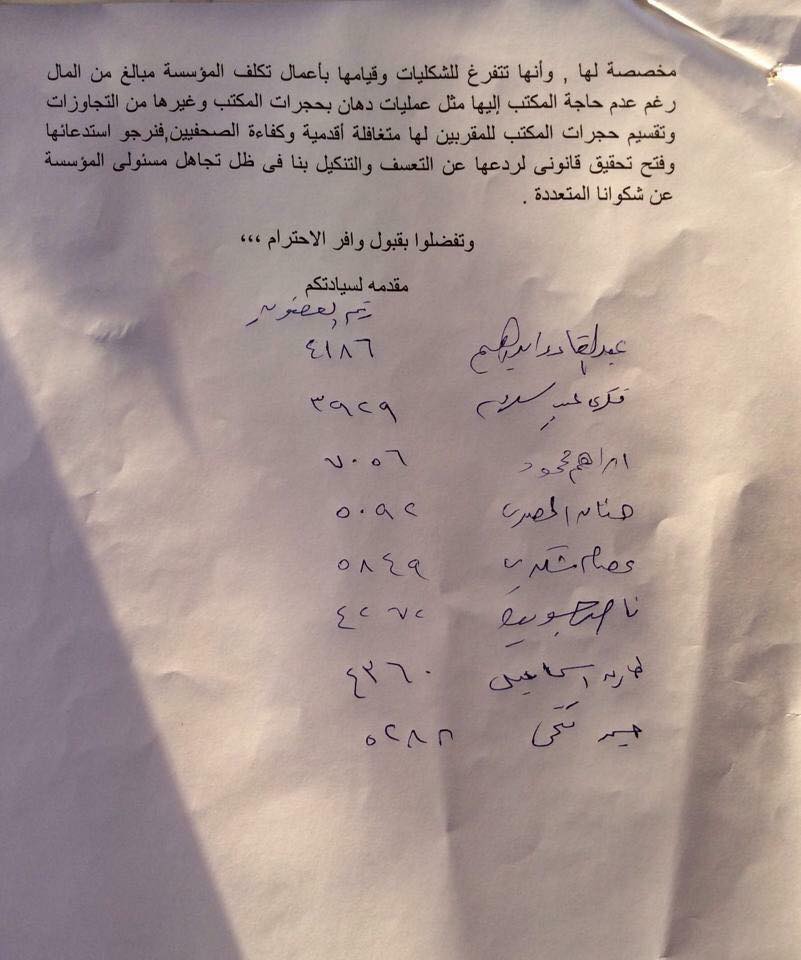 مخصصة لها , وأنها تتفرغ للشكليات وقيامها بأعمال تكلف المؤسسة مبالغ من المال
رغم عدم حاجة المكتب إليها مثل عمليات دهان بحجرات المكتب وغيرها من التجاوزات
وتقسيم حجرات المكتب للمقربين لها متغافلة أقدمية وكفاءة الصحفيين,فنرجو استدعائها
وفتح تحقيق قانونى لردعها عن التعسف والتنكيل بنا فى ظل تجاهل مسئولى المؤسسة
عن شكوانا المتعددة .
وتفضلوا بقبول وافر الاحترام ،،،
مقدمه لسيادتكم
رقم العضوية
عبد القادر ابراهيم ٤١٨٦
فكرى عبد السلام ٣٩٢٩
ابراهيم محمود ٧٠٥٦
حنان المصرى ٥٠٩٢
عصام ٥٨٤٩
ناصر ٤٢٧٢
طارق اسماعيل ٤٣٦٠
فتحى ٥٢٨٨